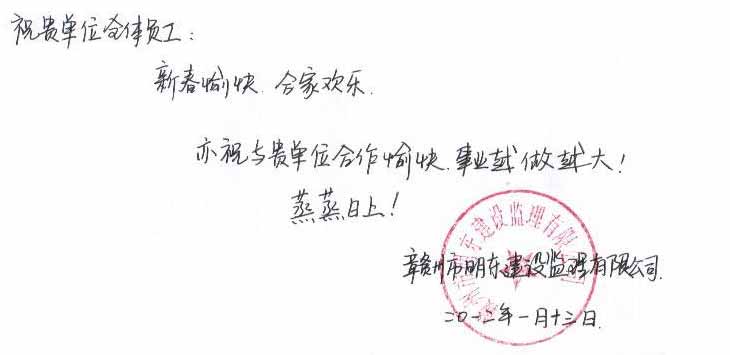 祝贵单位全体员工：
新春愉快.合家欢乐.
亦祝与贵单位合作愉快.事业越做越大！
蒸蒸日上！
赣州市明东建设监理有限公司.
二〇一二年一月十三日.
赣州市明东建设监理有限公司